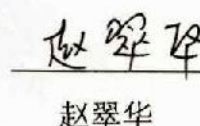 赵翠华
赵翠华